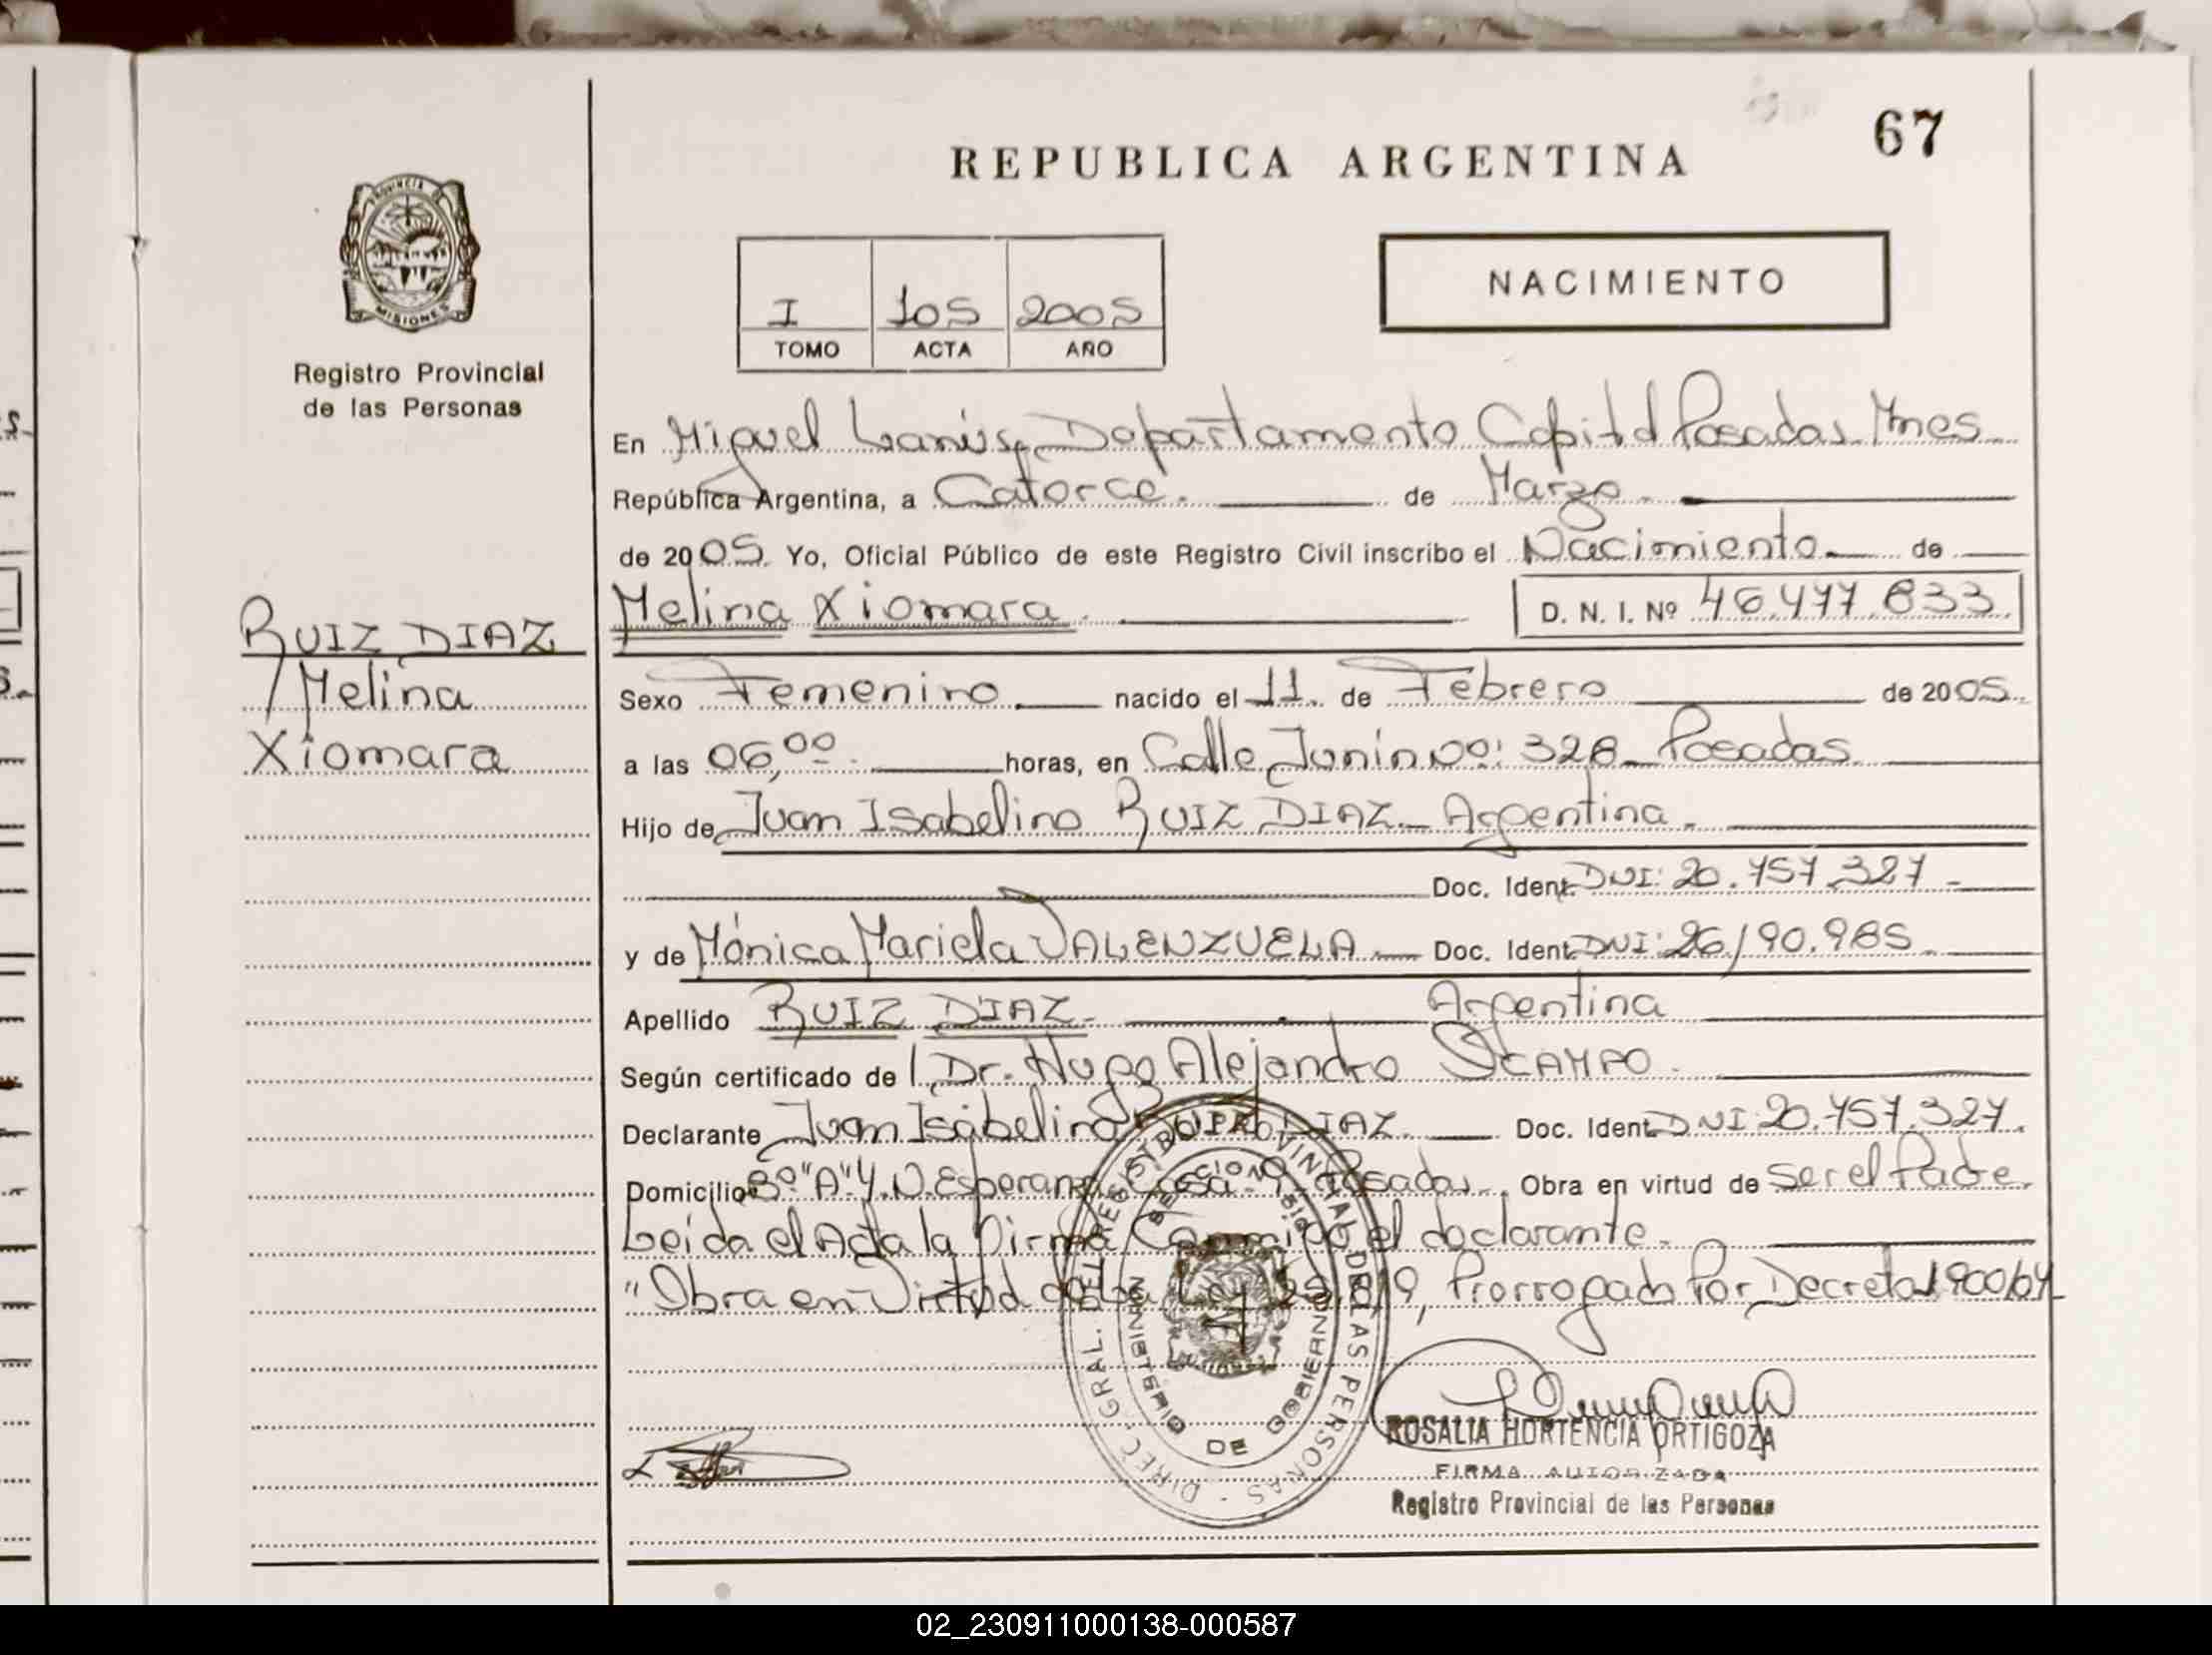 67
REPUBLICA ARGENTINA
PROVINCIA DE
MISIONES
Registro Provincial
de las Personas
NACIMIENTO
I 105 2005
TOMO ACTA AÑO
En Miguel Lanús, Departamento Capital Posadas Mnes
República Argentina, a Catorce. de Marzo.
de 2005. Yo, Oficial Público de este Registro Civil inscribo el Nacimiento de
Melina Xiomara. D. N. I. Nº 46.477.833
RUIZ DIAZ
Melina
Xiomara
Sexo Femenino nacido el 11. de Febrero de 2005.
a las 06,00. horas, en Calle Junín Nº: 328 Posadas.
Hijo de Juan Isabelino RUIZ DIAZ. Argentina.
Doc. Ident. DNI: 20.757.327
y de Mónica Mariela VALENZUELA Doc. Ident. DNI: 26.190.985
Apellido RUIZ DIAZ. Argentina
Según certificado de Dr. Hugo Alejandro OCAMPO.
Declarante Juan Isabelino RUIZ DIAZ Doc. Ident. DNI: 20.757.327.
Domicilio Bº "A" Posadas. Obra en virtud de ser el Padre.
Leida el Acta la Firma Conmigo el declarante.
"Obra en Virtud de la Ley 25.819, Prorrogada Por Decreto 1900/04
DIREC. GRAL. DEL REGISTRO PROVINCIAL DE LAS PERSONAS
MINISTERIO DE GOBIERNO
ROSALIA HORTENCIA ORTIGOZA
FIRMA AUTORIZADA
Registro Provincial de las Personas
02_230911000138-000587